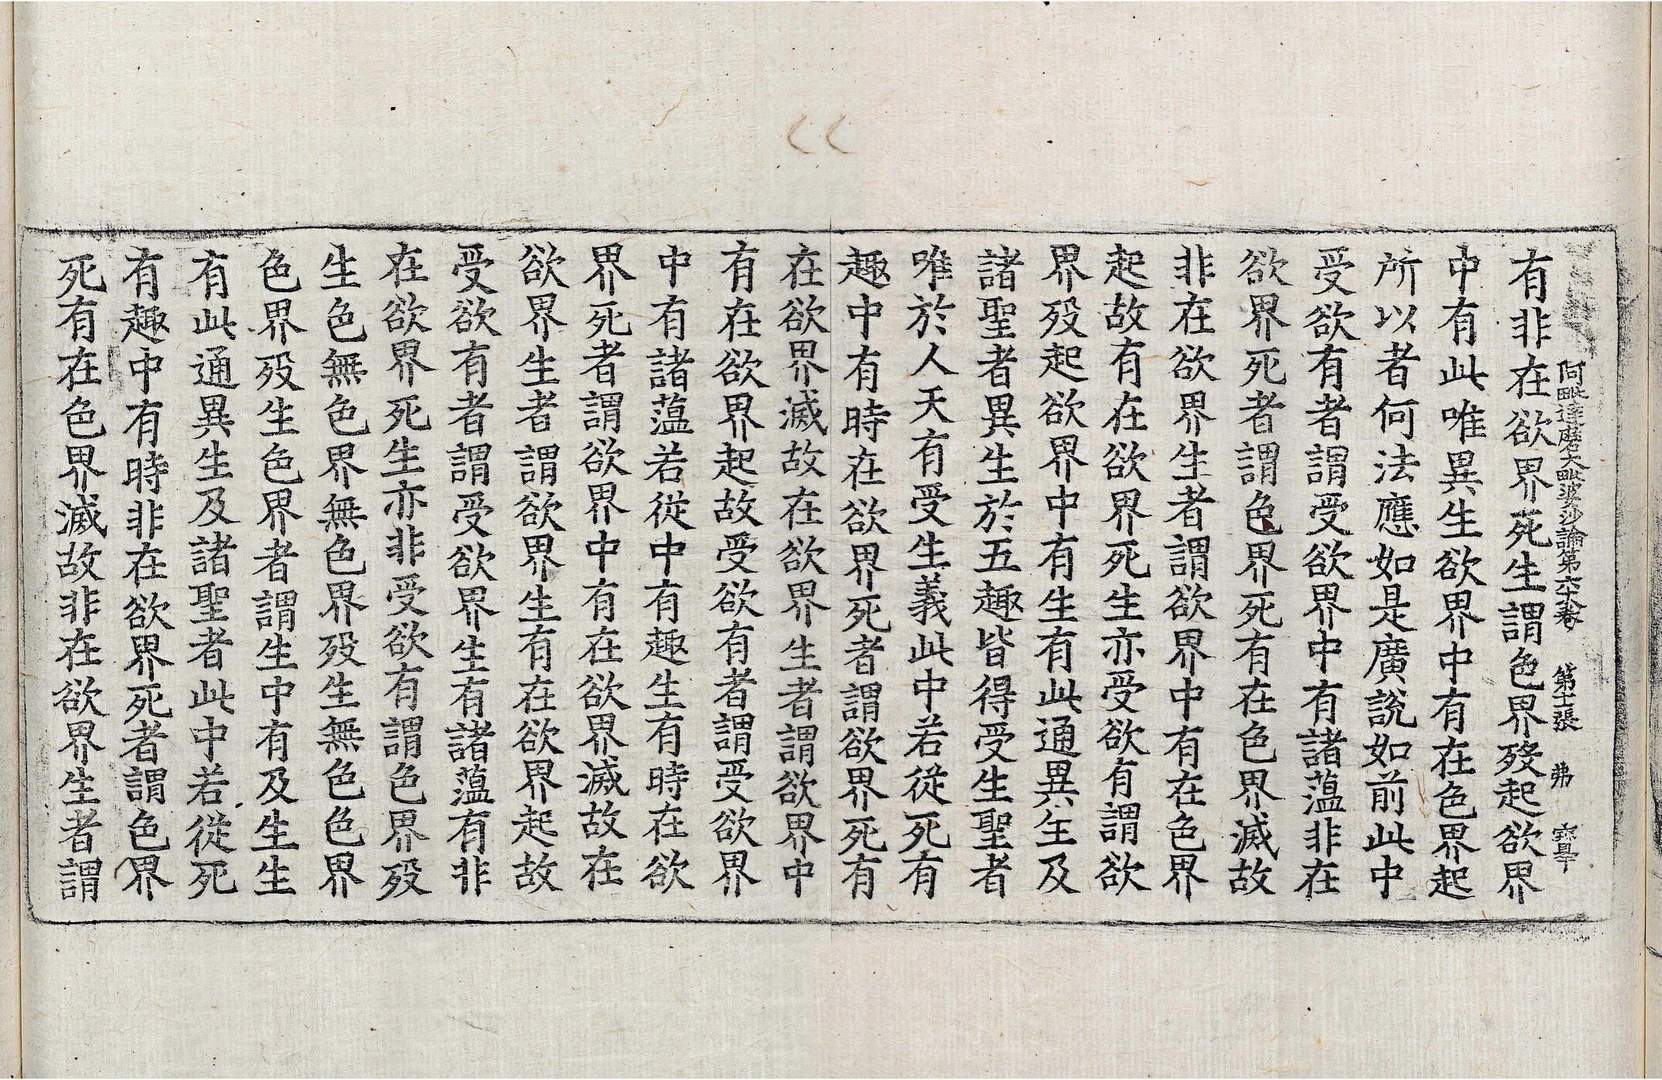 阿毗達磨大毗婆沙論第六十八卷 第十一張 弗
有非在欲界死生謂色界歿起欲界
中有此唯異生欲界中有在色界起
所以者何法應如是廣說如前此中
受欲有者謂受欲界中有諸蘊非在
欲界死者謂色界死有在色界滅故
非在欲界生者謂欲界中有在色界
起故有在欲界死生亦受欲有謂欲
界歿起欲界中有生有此通異生及
諸聖者異生於五趣皆得受生聖者
唯於人天有受生義此中若從死有
趣中有時在欲界死者謂欲界死有
在欲界滅故在欲界生者謂欲界中
有在欲界起故受欲有者謂受欲界
中有諸蘊若從中有趣生有時在欲
界死者謂欲界中有在欲界滅故在
欲界生者謂欲界生有在欲界起故
受欲有者謂受欲界生有諸蘊有非
在欲界死生亦非受欲有謂色界歿
生色無色界無色界歿生無色色界
色界歿生色界者謂生中有及生生
有此通異生及諸聖者此中若從死
有趣中有時非在欲界死者謂色界
死有在色界滅故非在欲界生者謂